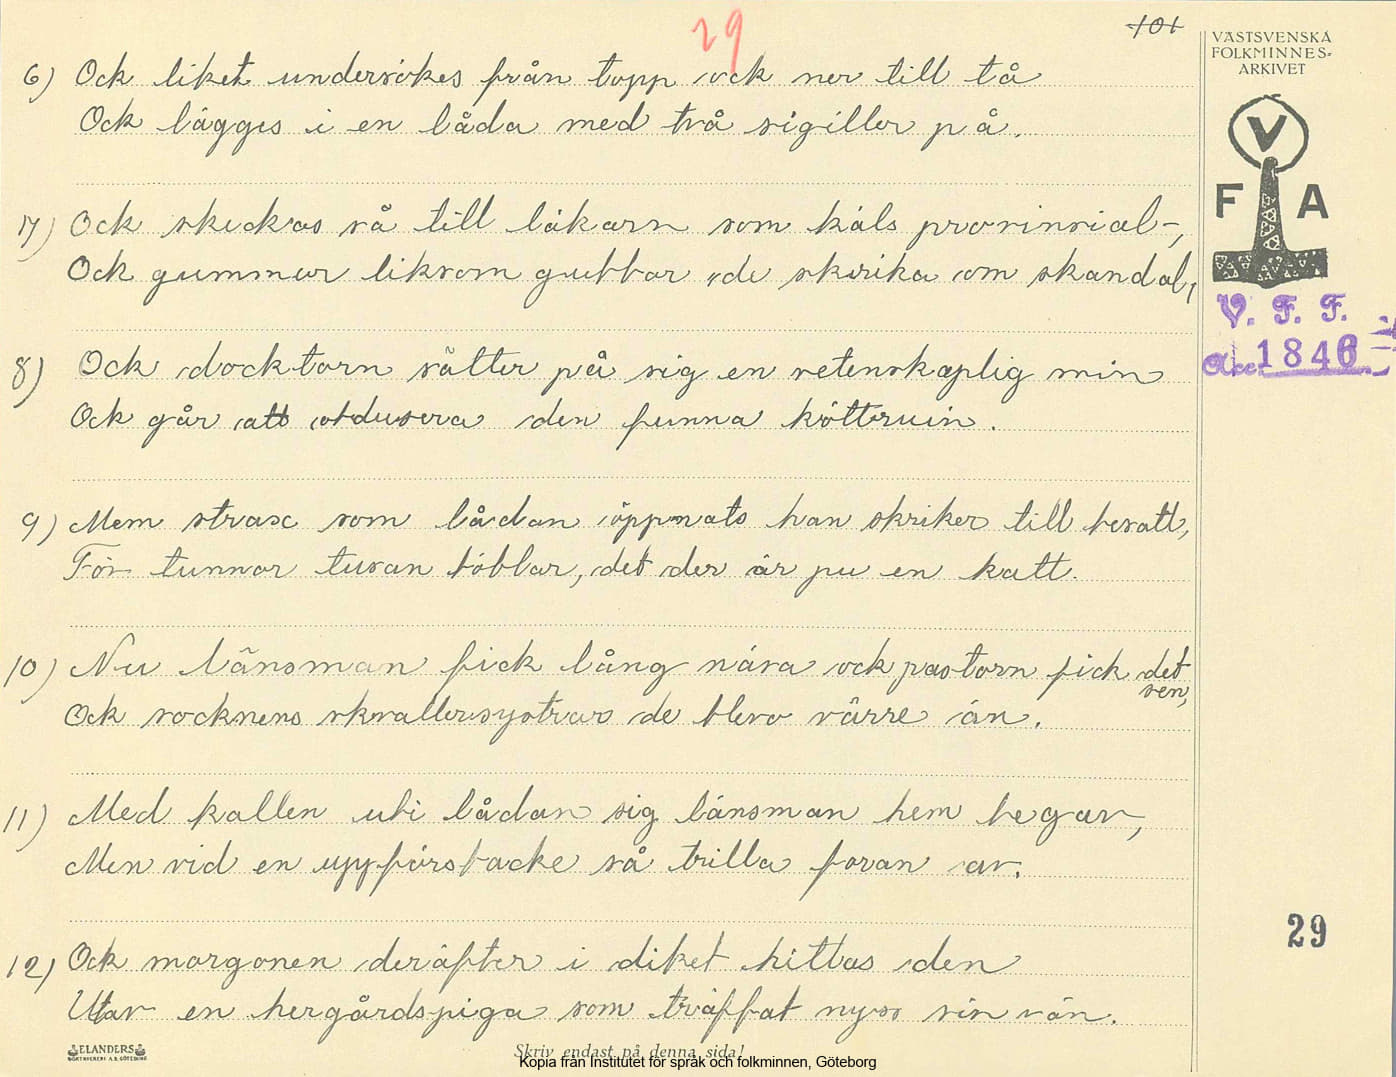 29
101
VÄSTSVENSKA
FOLKMINNES-
ARKIVET
V
F A
V. F. F.
Acc. 1846
6) Ock liket undersökes från topp ock ner till tå
Ock lägges i en låda med två sigiller på.
7) Ock skickas så till läkarn som käls provinsial-,
Ock gummur liksom gubbar, de skrika om skandal,
8) Ock docktorn sätter på sig en vetenskaplig min
Ock går att obducera den funna köttruin.
9) Mem strax som lådan öppnats han skriker till besatt,
För tunnor tusan böbblar, det der är ju en katt.
10) Nu länsman fick lång nära ock pastorn fick det
sen,
Ock socknens skvallersystrar de blevo värre än.
11) Med kallen uti lådan sig länsman hem begav,
Men vid en uppförsbacke så trilla foran av.
12) Ock morgonen deräfter i diket hittas den
Utav en hergårdspiga som träffat nyss sin vän.
29
ELANDERS
Skriv endast på denna sida!
Kopia från Institutet för språk och folkminnen, Göteborg